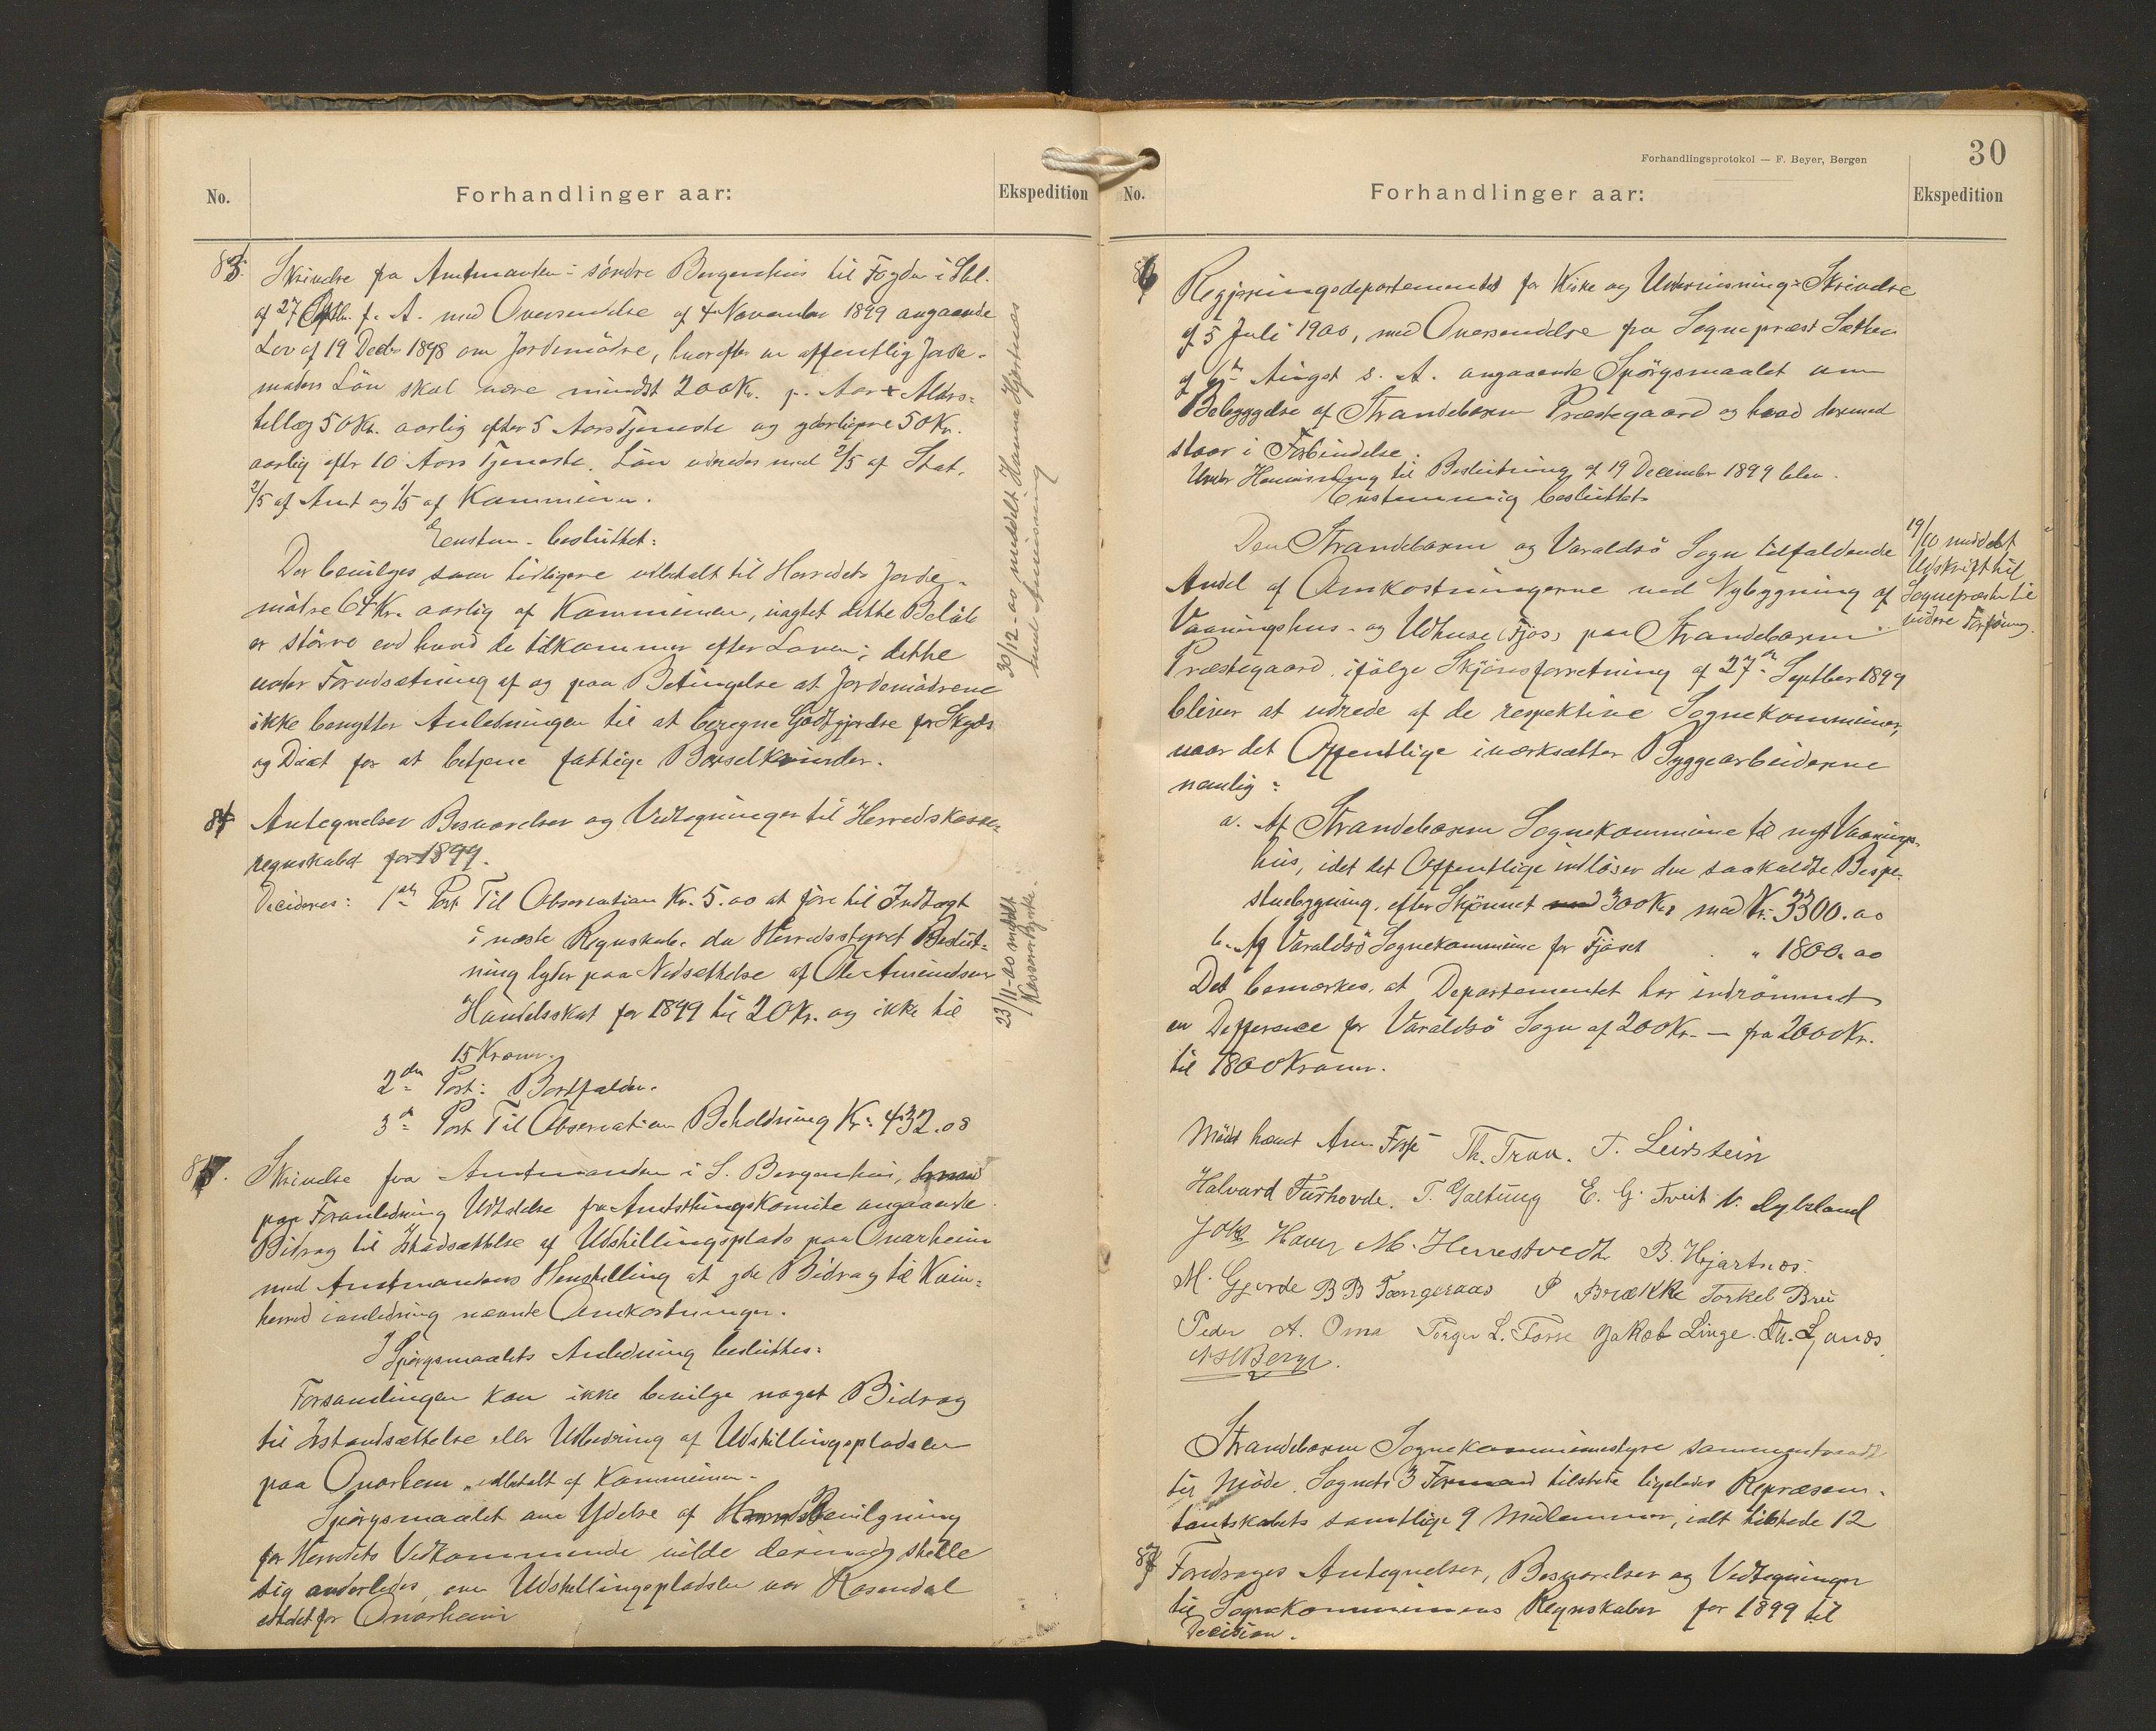 No.
Forhandlinger aar:
Ekspedition
83.
Skrivelse fra Amtmanden i söndre Bergenhus til Fogden i
af 27 f. A. med Oversendelse af 4 November 1899 angaaende
Lov af 19 Decbr 1898 om Jordemödre, hvorefter en offentlig Jorde-
moders Lön skal være mindst 200 Kr. pr. Aar + Alders-
tillæg 50 Kr. aarlig efter 5 Aars Tjeneste og yderligere 50 Kr.
aarlig eftr 10 Aars Tjeneste. Lön udredes med 2/5 af Stat,
2/5 af Amt og 1/5 af Kommunen.
Eenstem. besluttet:
Der bevilges som tidligere udbetalt til Herredets Jorde-
mödre 64 Kr. aarlig af Kommunen, uagtet dette Belöb
er större end hvad de tilkommer efter Loven; dette
under Forudsætning af og paa Betingelse at Jordemödrene
ikke benytter Anledningen til at beregne Godtgjörelse for Skyds
og Diæt for at betjene fattige Barselkvinder.
30/12-00 meddelt Hanna Hjartnæs
med Anvisning
84
Antegnelser Besvarelser og Vedtegninger til Herredskasse-
regnskabet for 1899.
Decideres: 1ste Post Til Observation Kr. 5.00 at före til Indtægt
i næste Regnskab, da Herredsstyret Beslut-
ning lyder paa Nedsættelse af Ole Amundsens
Handelsskat for 1899 til 20 Kr. og ikke til
15 Kroner.
2den Post: Bortfalder.
3die Post Til Observation Beholdning Kr. 432.08
23/11-00 meddelt
Kasserer Byrke.
85.
Skrivelse fra Amtmanden i S. Bergenhus,
paa Foranledning Udtalelse fra Amtstingskomite angaaende
Bidrag til Istandsættelse af Udstillingsplads paa Onarheim
med Amtmandens Henstilling at yde Bidrag til Kvin-
herred i anledning nævnte Omkostninger.
I Spörgsmaalets Anledning besluttes:
Forsamlingen kan ikke bevilge noget Bidrag
til Istandsættelse eller Udbedring af Udstillingspladsen
paa Onarheim, udbetalt af Kommunen.
Spörgsmaalet om Ydelse af Bevilgning
for Herredets Vedkommende vilde derimod stille
sig anderledes, om Udstillingspladsen var Rosendal
istedetfor Onarheim
Forhandlingsprotokol — F. Beyer, Bergen
30
No.
Forhandlinger aar:
Ekspedition
86
Regjeringsdepartementet for Kirke og Undervisnings Skrivelse
af 5 Juli 1900, med Oversendelse fra Sogneprest Sæther
af 6te August s. A. angaaende Spörgsmaalet om
Bebyggelse af Strandebarm Præstegaard og hvad dermed
staar i Forbindelse.
Under Henvisning til Beslutning af 19 December 1899 blev
Enstemmig besluttet
Den Strandebarm og Varaldsö Sogn tilfaldende
Andel af Omkostningerne ved Nybygning af
Vaaningshus- og Udhuse (Fjös) paa Strandebarm
Præstegaard, ifölge Skjönsforretning af 27de Septber 1899
bliver at udrede af de respektive Sognekommuner,
naar det Offentlige iværksætter Byggearbeiderne
nemlig:
19/10 meddelt
Udskrift til
Sognepresten til
videre Forföining.
a. Af Strandebarm Sognekommune til nyt Vaanings-
hus, idet det Offentlige indlöser den saakaldte Bispe-
stuebygning, efter Skjönnet 300 Kr. med Kr. 3300.00
b. Af Varaldsö Sognekommune for Fjöset " 1800.00
Det bemærkes, at Departementet har indrömmet
en Differance for Varaldsö Sogn af 200 Kr. – fra 2000 Kr.
til 1800 Kroner.
Mödet hævet Am. Fosse Th. Traa. T. Leirstein
Halvard Furhovde. T. Galtung E. G. Tveit
Håvig M. Herrestvedt B. Hjartnæs.
M. Gjerde B B Tangeraas P Brække Torkel Bru
Peder A. Oma Torger L. Fosse Jakob Linge. Th. Ljones
Berge.
Strandebarm Sognekommunestyre sammentraadt
til Möde. Sognets 3 Formænd tilstede ligeledes Repræsen-
tantskabets samtlige 9 Medlemmer, ialt tilstede 12
87
Foredrages Antegnelser, Besvarelser og Vedtegninger
til Sognekommunens Regnskaber for 1899 til
Decision.